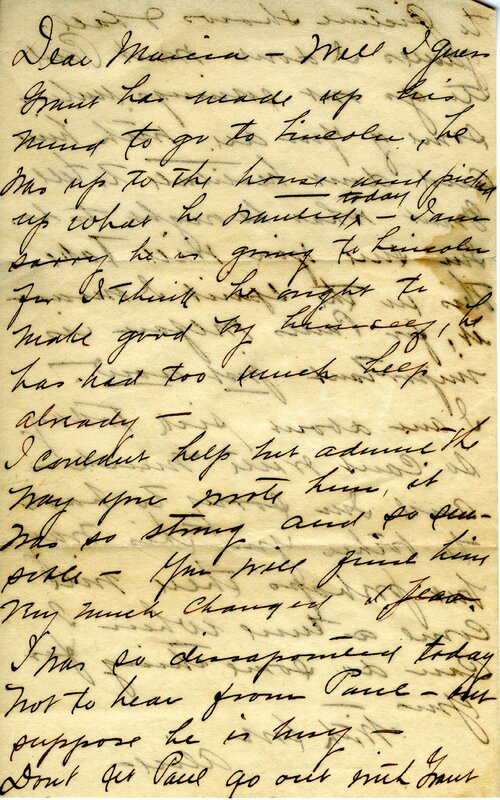 Dear Marcia – Well I guess
Grant has made up his
mind to go to Lincoln, he
was up to the house and picked
up what he wanted today – I am
sorry he is going to Lincoln
for I think he ought to
make good by himself, he
has had too much help
already –
I couldn't help but admire the
way you wrote him, it
was so strong and so sen-
sible – You will find him
very much changed I fear.
I was so dissapointed today
not to hear from Paul – but
suppose he is busy –
Dont let Paul go out with Grant